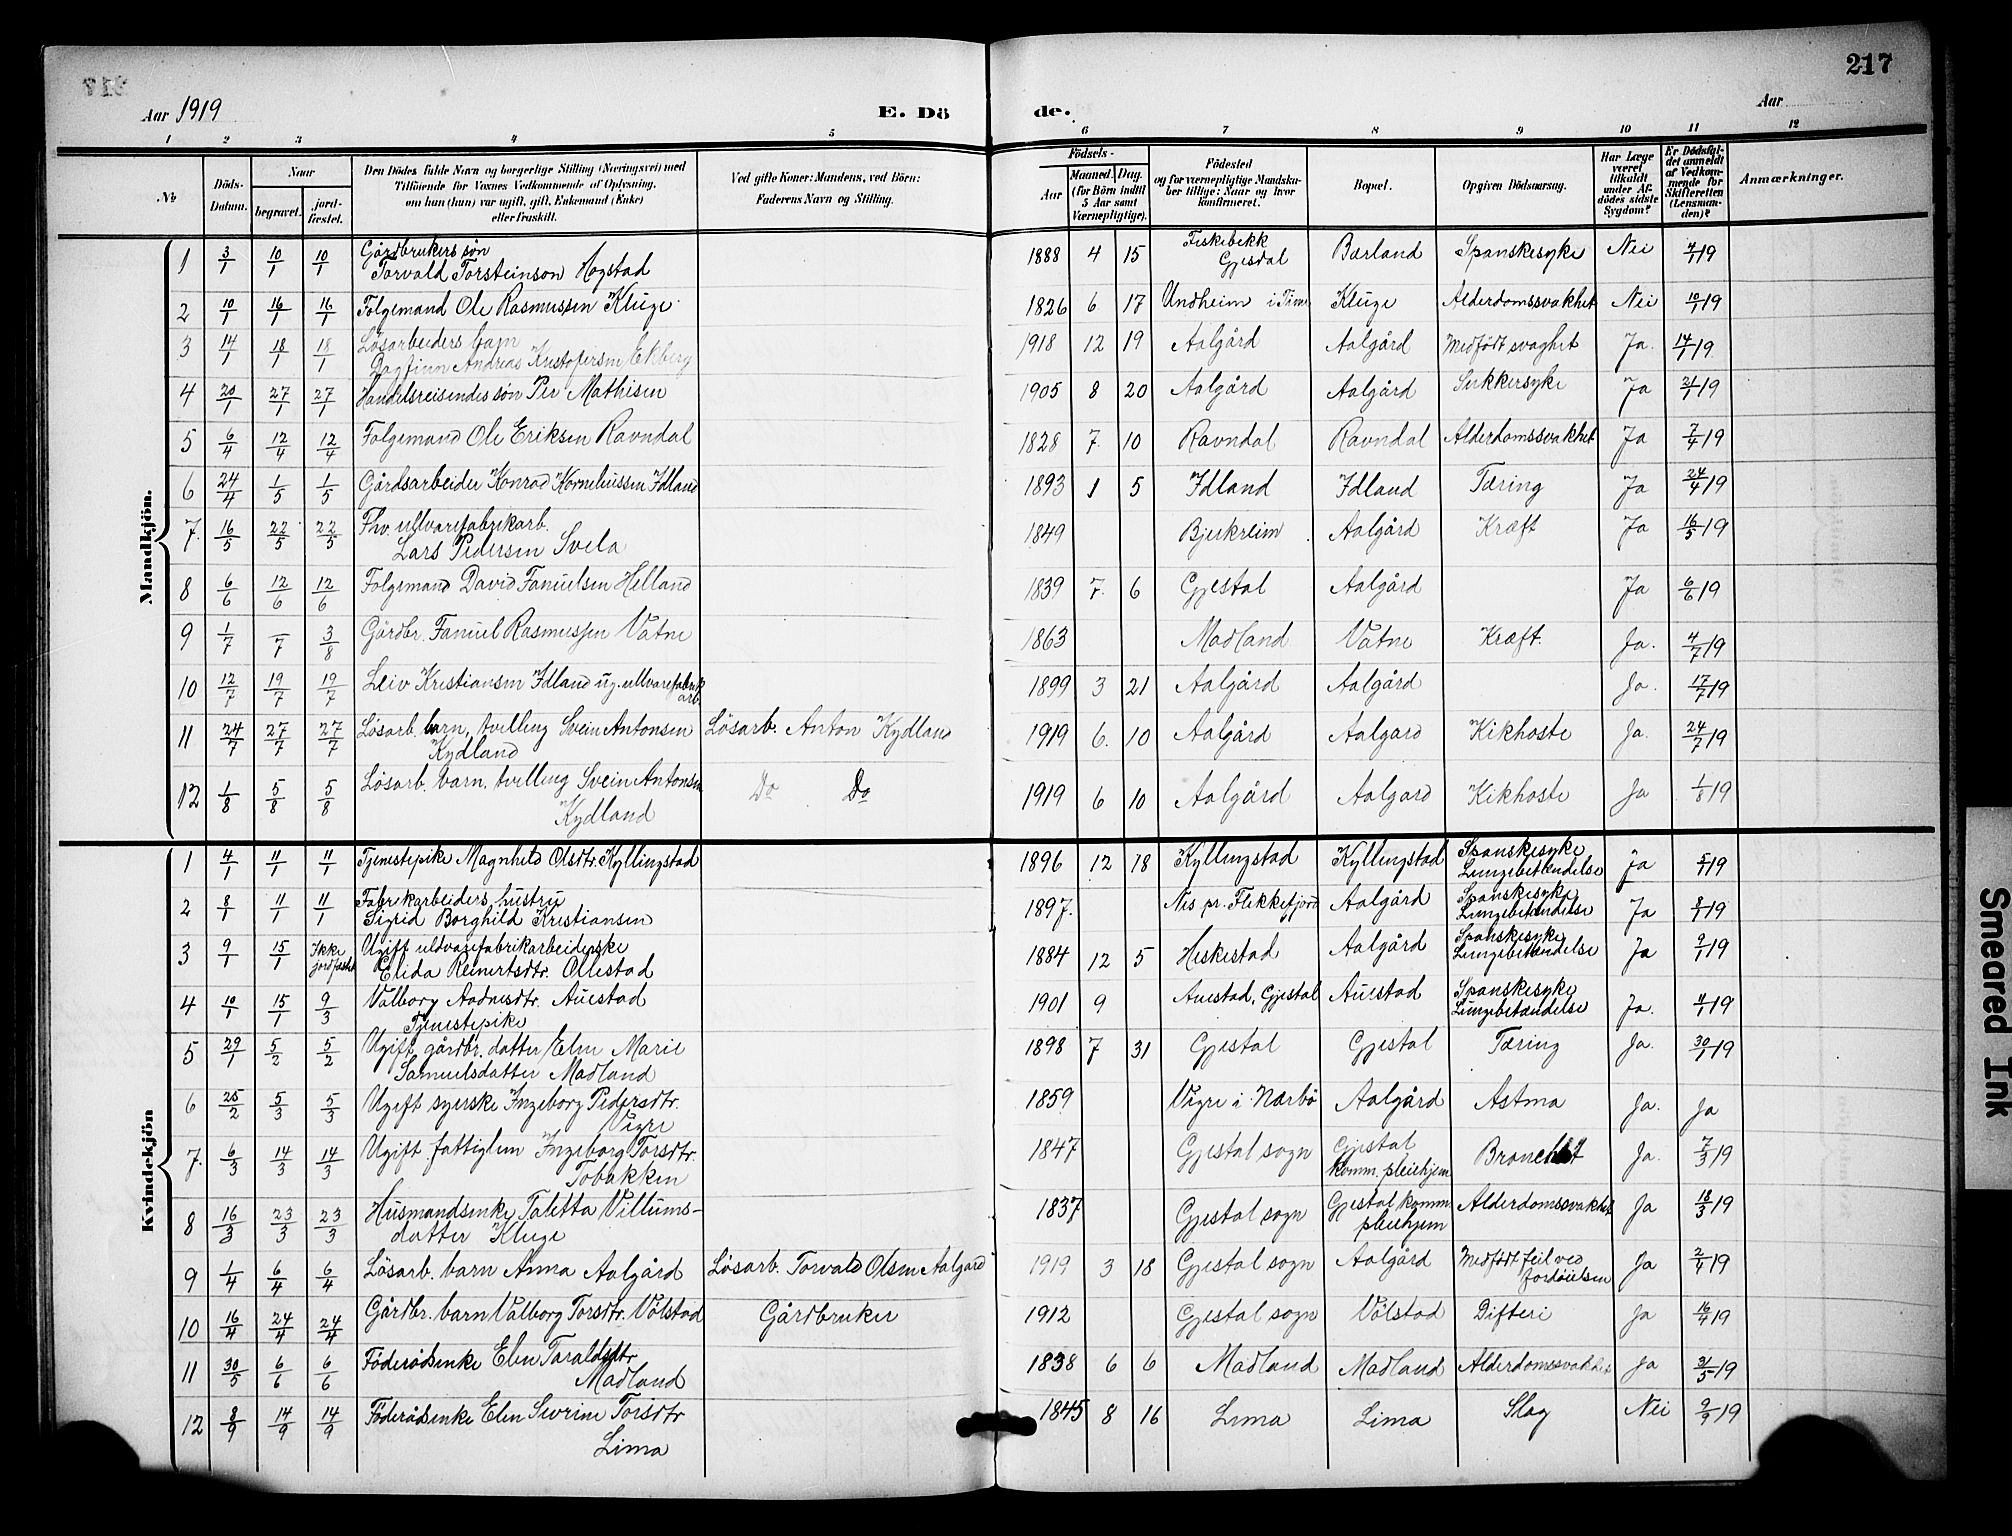 217
Aar 1919
E. Dö
de.
Aar
1 2 3 4 5 6 7 8 9 10 11 12
No
Döds-
Datum.
Naar
begravet.
jord-
fæstet.
Den Dödes fulde Navn og borgerlige Stilling (Næringsvei) med
Tilföiende for Voxnes Vedkommende af Oplysning,
om han (hun) var ugift, gift, Enkemand (Enke)
eller fraskilt.
Ved gifte Koner: Mandens, ved Börn:
Faderens Navn og Stilling.
Födsels-
Aar
Maaned. Dag.
(for Börn indtil
5 Aar samt
Værnepligtige).
Födested
og for værnepligtige Mandska-
ber tillige: Naar og hvor
konfirmeret.
Bopæl.
Opgiven Dödsaarsag.
Har Læge
været
tilkaldt
under Af-
dödes sidste
Sygdom?
Er Dödsfal-
det anmeldt
af Vedkom-
mende for
Skifteretten
(Lensman-
den)?
Anmærkninger.
Mandkjön.
1 3/1 10/1 10/1 Gårdbrukers søn
Torvald Torsteinson Hogstad 1888 4 15 Fiskebekk
Gjesdal Bærland Spanskesyke Nei 4/1 19
2 10/1 16/1 16/1 Folgemand Ole Rasmussen Kluge 1826 6 17 Undheim i Time Kluge Alderdomssvakhet Nei 10/1 19
3 14/1 18/1 18/1 Lösarbeiders barn
Dagfinn Andreas Kristofersen Ekberg 1918 12 19 Aalgård Aalgård Medfödt svaghet Ja. 14/1 19
4 20/1 27/1 27/1 Handelsreisendes søn Per Mathisen 1905 8 20 Aalgård Aalgård Sukkersyke Ja 21/1 19
5 6/4 12/4 12/4 Folgemand Ole Eriksen Ravndal 1828 7 10 Ravndal Ravndal Alderdomssvakhet Ja 7/4 19
6 24/4 1/5 1/5 Gårdsarbeider Konrad Korneliussen Idland 1893 1 5 Idland Idland Tæring Ja 24/4 19
7. 16/5 22/5 22/5 Fhv. ullvarefabrikarb.
Lars Pedersen Svela 1849 Bjerkreim Aalgård Kræft Ja 16/5 19
8 6/6 12/6 12/6 Folgemand David Fanuelsen Helland 1839 7. 6 Gjestal Aalgård Ja 6/6 19
9 1/7 –/7 3/8 Gårdbr. Fanuel Rasmussen Vatne 1863 Madland Vatne Kræft Ja. 4/7 19
10 12/7 19/7 19/7 Leiv Kristiansen Idland ug. ullvarefabrik
arb. 1899 3 21 Aalgård Aalgård Ja. 17/7 19
11 24/7 27/7 27/7 Lösarb. barn, tvilling Svein Antonsen
Kydland Lösarb. Anton Kydland 1919 6. 10 Aalgård Aalgard Kikhoste Ja. 24/7 19
12 1/8 5/8 5/8 Lösarb. barn. tvilling Svein Antonsen
Kydland Do Do 1919 6 10 Aalgård Aalgard Kikhoste Ja 1/8 19
Kvindekjön
1 4/1 11/1 11/1 Tjenestepike Magnhild Olsdtr. Kyllingstad 1896 12 18 Kyllingstad Kyllingstad Spanskesyke
Lungebetændelse Ja 5/1 19
2 8/1 11/1 11/1 Fabrikarbeiders hustru
Sigrid Borghild Kristiansen 1897. Nes pr. Flekkefjord Aalgård Spanskesyke
Lungebetændelse Ja 8/1 19
3 9/1 15/1 Ikke
jordfæstet Ugift uldvarefabrikarbeiderske
Elida Reinertsdtr. Ollestad 1884 12 5 Heskestad Aalgård Spanskesyke
Lungebetændelse Ja 9/1 19
4 10/1 15/1 9/3 Valborg Aadnesdtr. Auestad
Tjenestepike 1901 9 Auestad, Gjestal Auestad Spanskesyke
Lungebetændelse Ja. 11/1 19
5 29/1 5/2 5/2 Ugift gårdbr. datter Elen Marie
Samuelsdatter Madland 1898 7 31 Gjestal Gjestal Tæring Ja. 30/1 19
6 25/2 5/3 5/3 Ugift syerske Ingeborg Pedersdtr.
Vigre 1859 Vigre i Nærbö Aalgård Astma Ja. Ja
7. 6/3 14/3 14/3 Ugift fattiglem Ingeborg Torsdtr.
Tobakken 1847 Gjestal sogn Gjestal
komm. pleiehjem Ja. 7/3 19
8 16/3 23/3 23/3 Husmandsenke Taletta Villums-
datter Kluge 1837 Gjestal sogn Gjestal komm.
pleiehjem Alderdomssvakhet Ja 18/3 19
9 1/4 6/4 6/4 Lösarb. barn Anna Aalgård Lösarb. Torvald Olsen Aalgard 1919 3 18 Gjestal sogn Aalgård Medfödt feil ved
fordöielsen Ja 2/4 19
10 16/4 24/4 24/4 Gårdbr. barn Valborg Torsdtr. Völstad Gårdbruker 1912 Gjestal sogn Völstad Difteri Ja 16/4 19
11 30/5 6/6 6/6 Föderådsenke Elen Taraldsdtr
Madland 1838 6 6 Madland Madland Alderdomssvakhet Ja 31/5 19
12 8/9 14/9 14/9 Föderådsenke Elen Severine Torsdtr
Lima 1845 8 16 Lima Lima Slag Nei 9/9 19
Smeared Ink